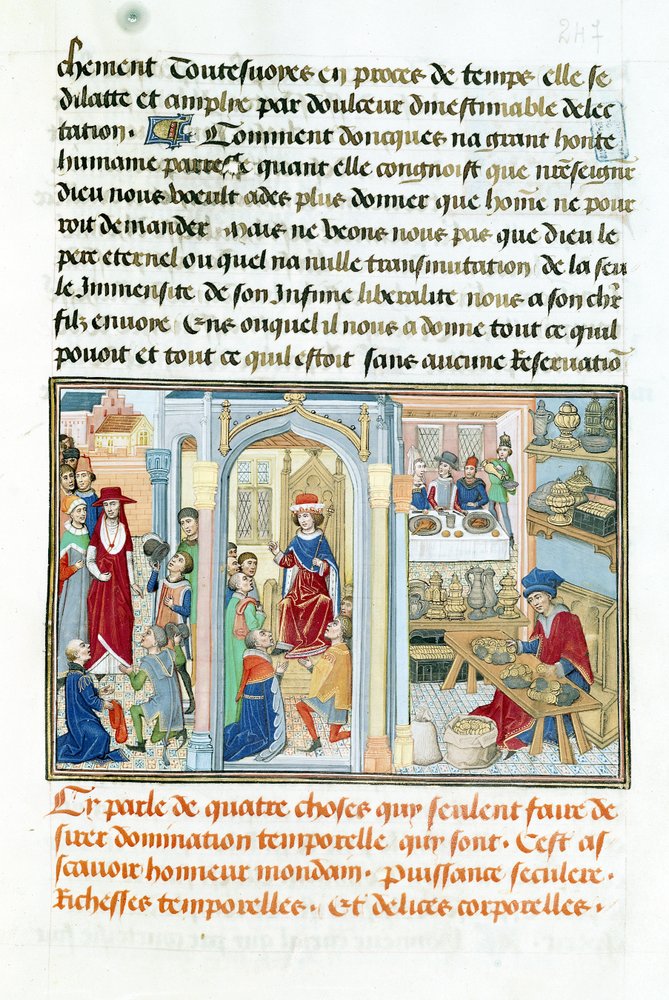 247
chement Toutesuoyes en proces de temps elle se
dilatte et amplie par doulceur dinestimable delec
tation. Comment doncques na grant honte
humaine parresse quant elle congnoist que nrẽ seignr̃
dieu nous voeult ades plus donner que hom̃e ne pour
roit demander Mais ne veons nous pas que dieu le
pere eternel ou quel na nulle transmutation de la seu
le Immensite de son Infinie liberalite nous a son chr̃
filz enuoye Ens ouquel il nous a donne tout ce quil
pouoit et tout ce quil estoit sans aucune Reseruatiõ
Cy parle de quatre choses quy seulent faire de
sirer domination temporelle quy sont. Cest as
scauoir honneur mondain. Puissance seculere.
Richesses temporelles. Et delices corporelles.